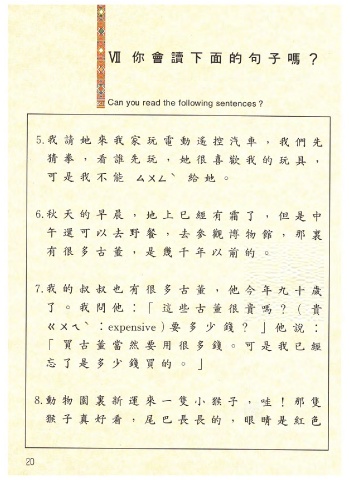 Ⅶ 你會讀下面的句子嗎？
Can you read the following sentences？
5.我請她來我家玩電動遙控汽車，我們先
猜拳，看誰先玩，她很喜歡我的玩具，
可是我不能 ㄙㄨㄥˋ 給她。
6.秋天的早晨，地上已經有霜了，但是中
午還可以去野餐，去參觀博物館，那裏
有很多古董，是幾千年以前的。
7.我的叔叔也有很多古董，他今年九十歲
了。我問他：「這些古董很貴嗎？（貴
ㄍㄨㄟˋ：expensive）要多少錢？」他說：
「買古董當然要用很多錢。可是我已經
忘了是多少錢買的。」
8.動物園裏新運來一隻小猴子，哇！那隻
猴子真好看，尾巴長長的，眼睛是紅色
20